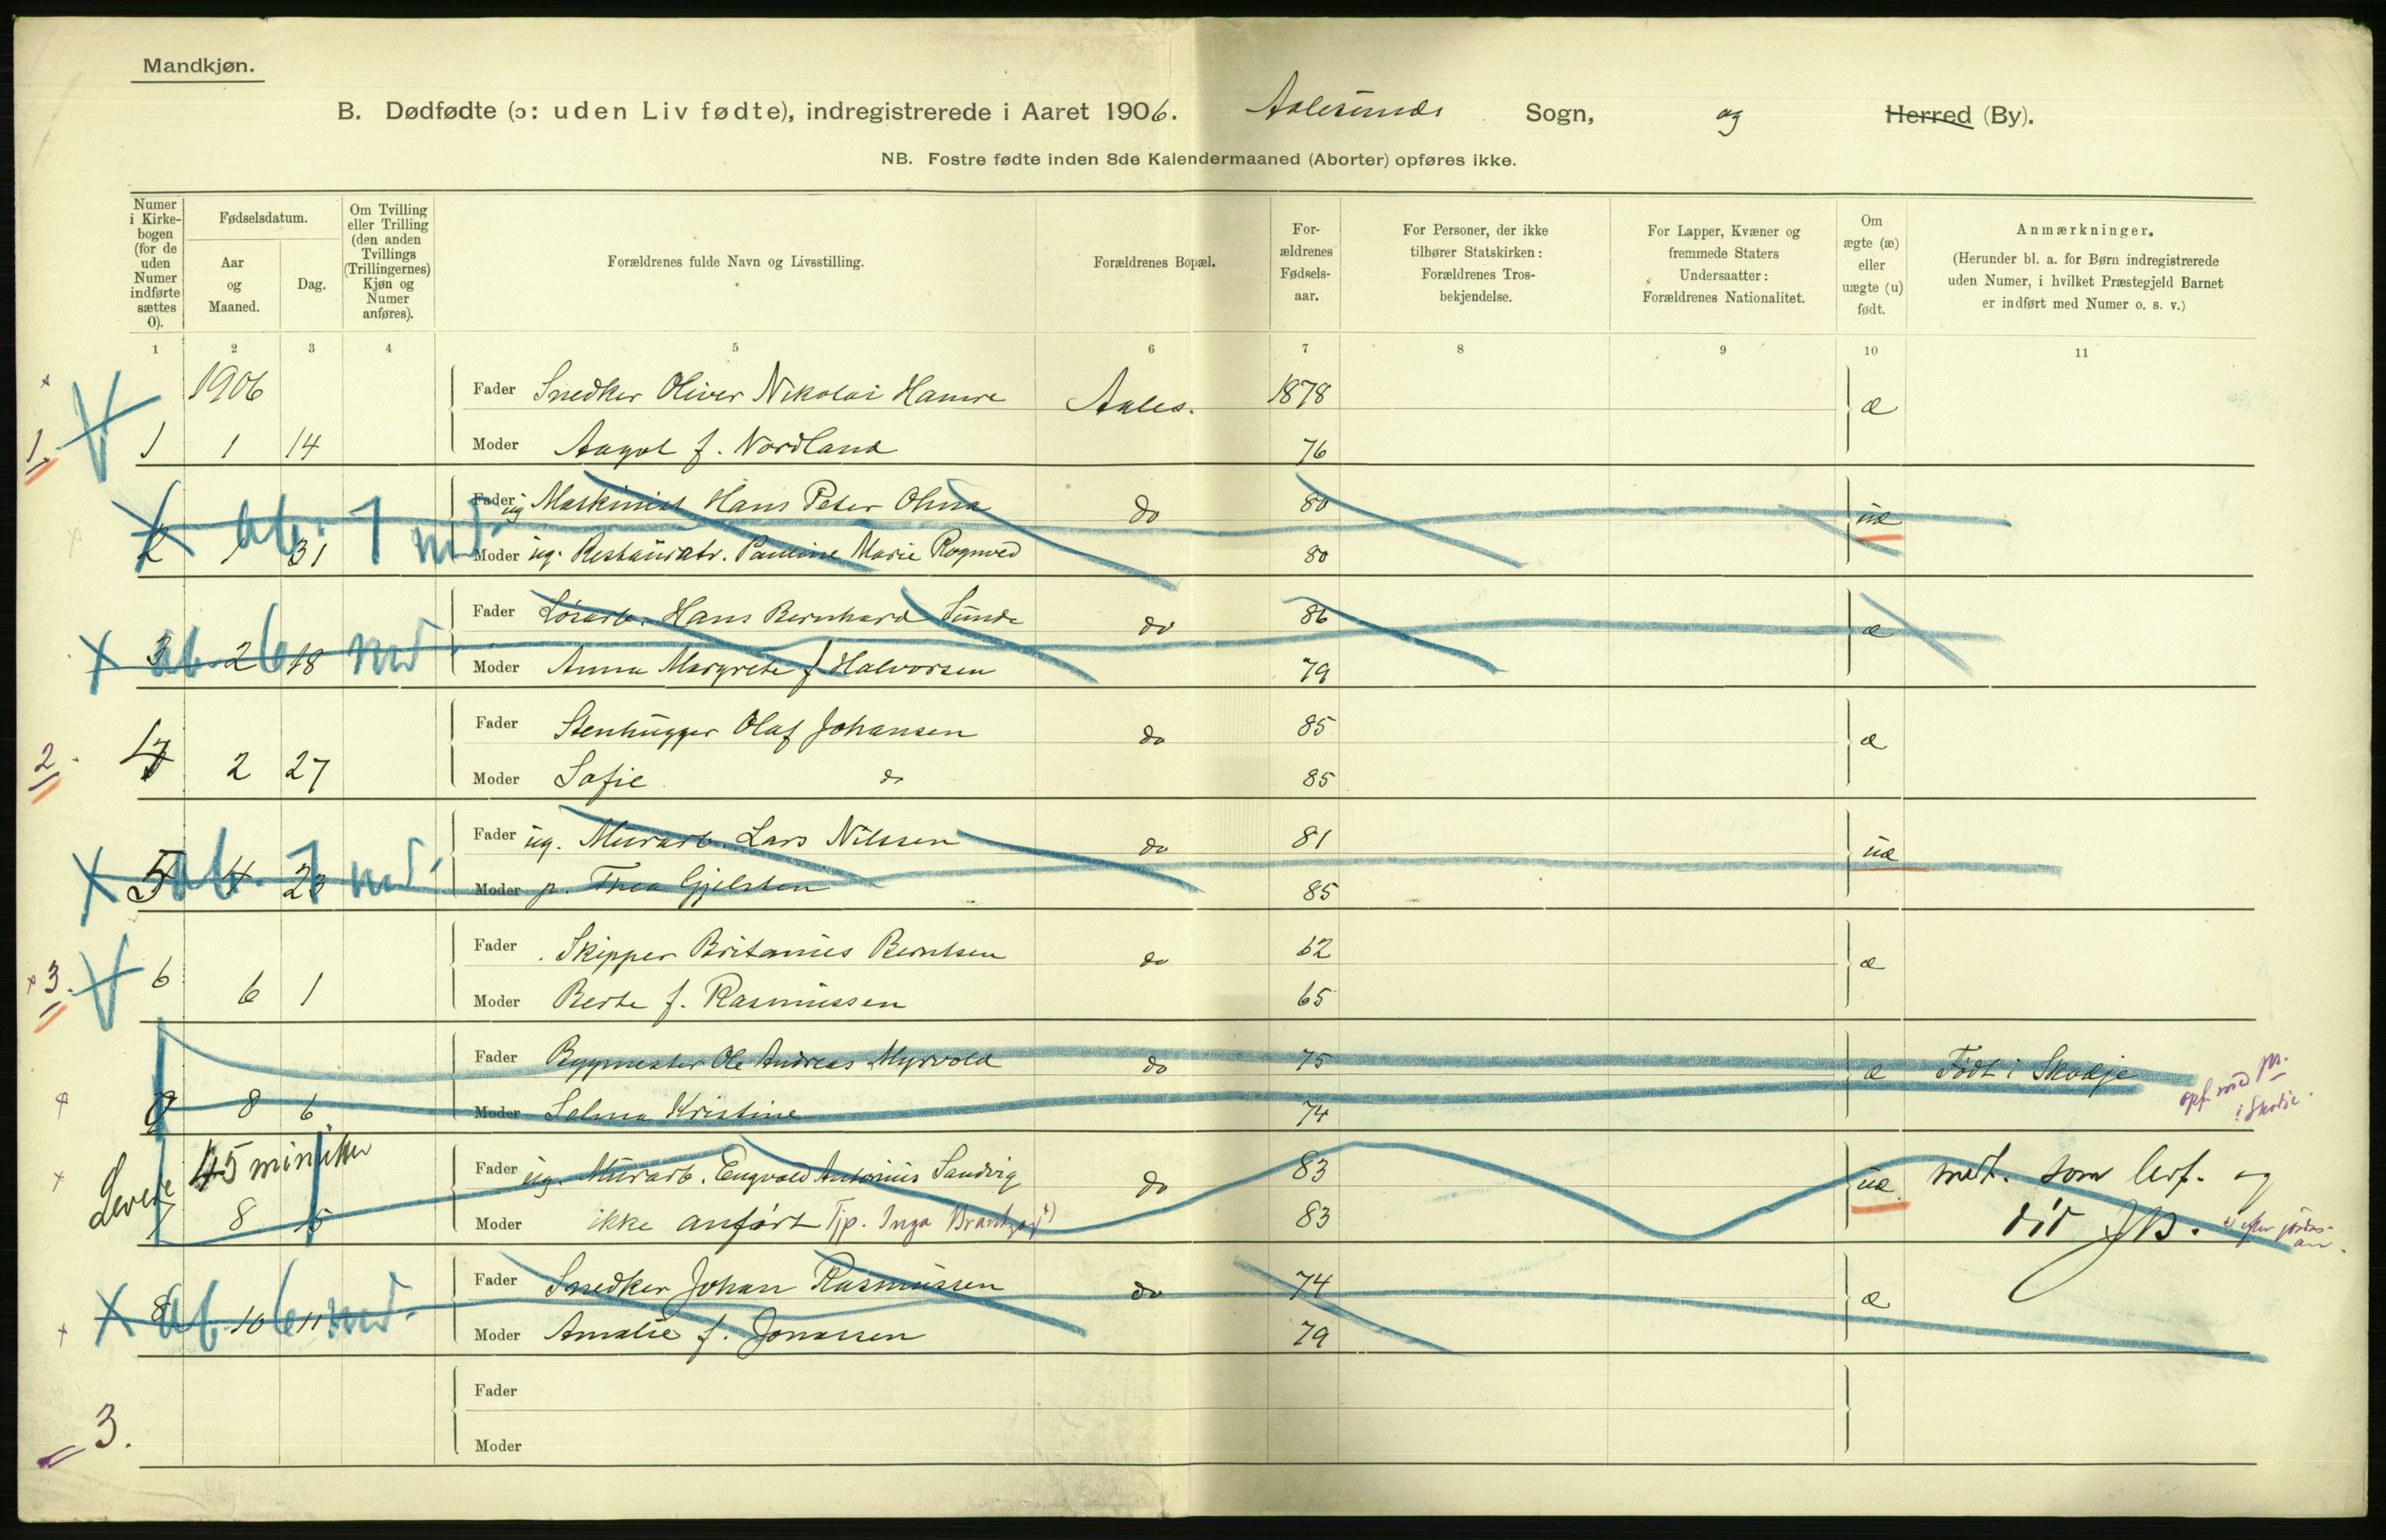 Mandkjøn.
B. Dødfødte (ɔ: uden Liv fødte), indregistrerede i Aaret 1906. Aalesunds Sogn, og Herred (By).
NB. Fostre fødte inden 8de Kalendermaaned (Aborter) opføres ikke.
Numer i Kirke- bogen (for de uden Numer indførte sættes 0).
Fødselsdatum.
Aar og Maaned.
Dag.
Om Tvilling eller Trilling (den anden Tvillings (Trillingernes) Kjøn og Numer anføres).
Forældrenes fulde Navn og Livsstilling.
Forældrenes Bopæl.
For- ældrenes Fødsels- aar.
For Personer, der ikke tilhører Statskirken: Forældrenes Tros- bekjendelse.
For Lapper, Kvæner og fremmede Staters Undersaatter: Forældrenes Nationalitet.
Om ægte (æ) eller uægte (u) født.
Anmærkninger.
(Herunder bl. a. for Børn indregistrerede uden Numer, i hvilket Præstegjeld Barnet er indført med Numer o. s. v.)
1 2 3 4 5 6 7 8 9 10 11
1906 Fader Snedker Oliver Nikolai Hamre Aales. 1878 æ
1. 1 1 14 Moder Aagot f. Nordland 76
Fader ug Maskinist Hans Peter Ohna do 80 uæ
2 1 31 ab. 7 md. Moder ug. Restauratr. Pauline Marie Rognved 80
Fader Løsarb. Hans Bernhard Sunde do 86 æ
3 2 18 ab. 6 md Moder Anna Margrete f Halvorsen 79
Fader Stenhugger Olaf Johansen do 85 æ
2. 4 2 27 Moder Sofie do 85
Fader ug. Murarb. Lars Nilssen do 81 uæ
5 4 23 ab. 7 md. Moder p. Thea Gjelsten 85
Fader Skipper Britanius Berntsen do 62 æ
3. 6 6 1 Moder Berte f. Rasmussen 65
Fader Bygmester Ole Andreas Myrvold do 75 æ Født i Skodje
0 8 6 Moder Selma Kristine 74 opf. med № i Skodje.
Levede 45 minuter Fader ug. Murarb. Engvald Antonius Sandvig do 83 uæ. medt. som levf. og
7 8 5 Moder ikke anført Tjp. Inga 83 død JB.
Fader Snedker Johan Rasmussen do 74 æ
8 10 11 ab. 6 md. Moder Amalie f. Jonassen 79
Fader
3. Moder